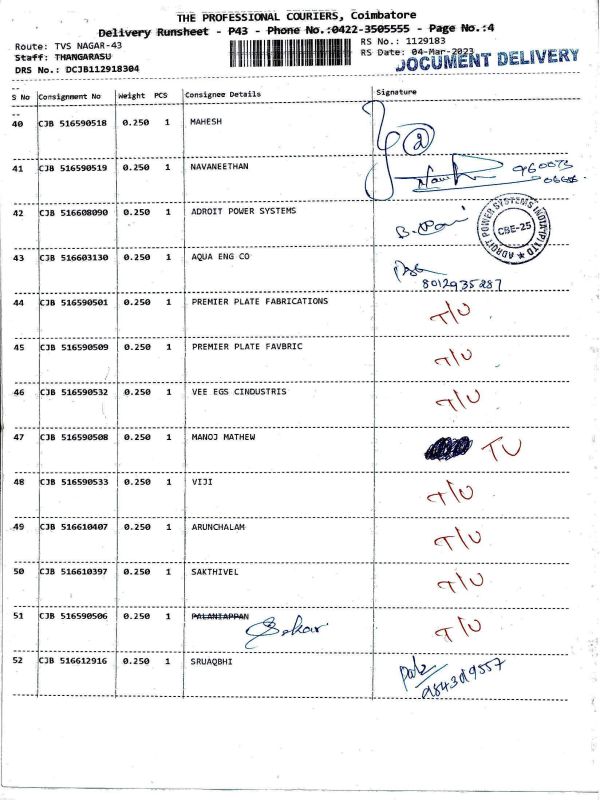 THE PROFESSIONAL COURIERS, Coimbatore
Delivery Runsheet - P43 - Phone No.:0422-3505555 - Page No.:4
Route: TVS NAGAR-43
RS No.: 1129183
Staff: THANGARASU
RS Date: 04-Mar-2023
DOCUMENT DELIVERY
DRS No.: DCJB112918304
S No Consignment No Weight PCS Consignee Details Signature
40 CJB 516590518 0.250 1 MAHESH
41 CJB 516590519 0.250 1 NAVANEETHAN
42 CJB 516608090 0.250 1 ADROIT POWER SYSTEMS
ADROIT POWER SYSTEMS INDIA (P) LTD
CBE-25
43 CJB 516603130 0.250 1 AQUA ENG CO
8012935287
44 CJB 516590501 0.250 1 PREMIER PLATE FABRICATIONS T/U
45 CJB 516590509 0.250 1 PREMIER PLATE FAVBRIC T/U
46 CJB 516590532 0.250 1 VEE EGS CINDUSTRIS T/U
47 CJB 516590508 0.250 1 MANOJ MATHEW TU
48 CJB 516590533 0.250 1 VIJI T/U
49 CJB 516610407 0.250 1 ARUNCHALAM T/U
50 CJB 516610397 0.250 1 SAKTHIVEL T/U
51 CJB 516590506 0.250 1 PALANIAPPAN Sekar T/U
52 CJB 516612916 0.250 1 SRUAQBHI